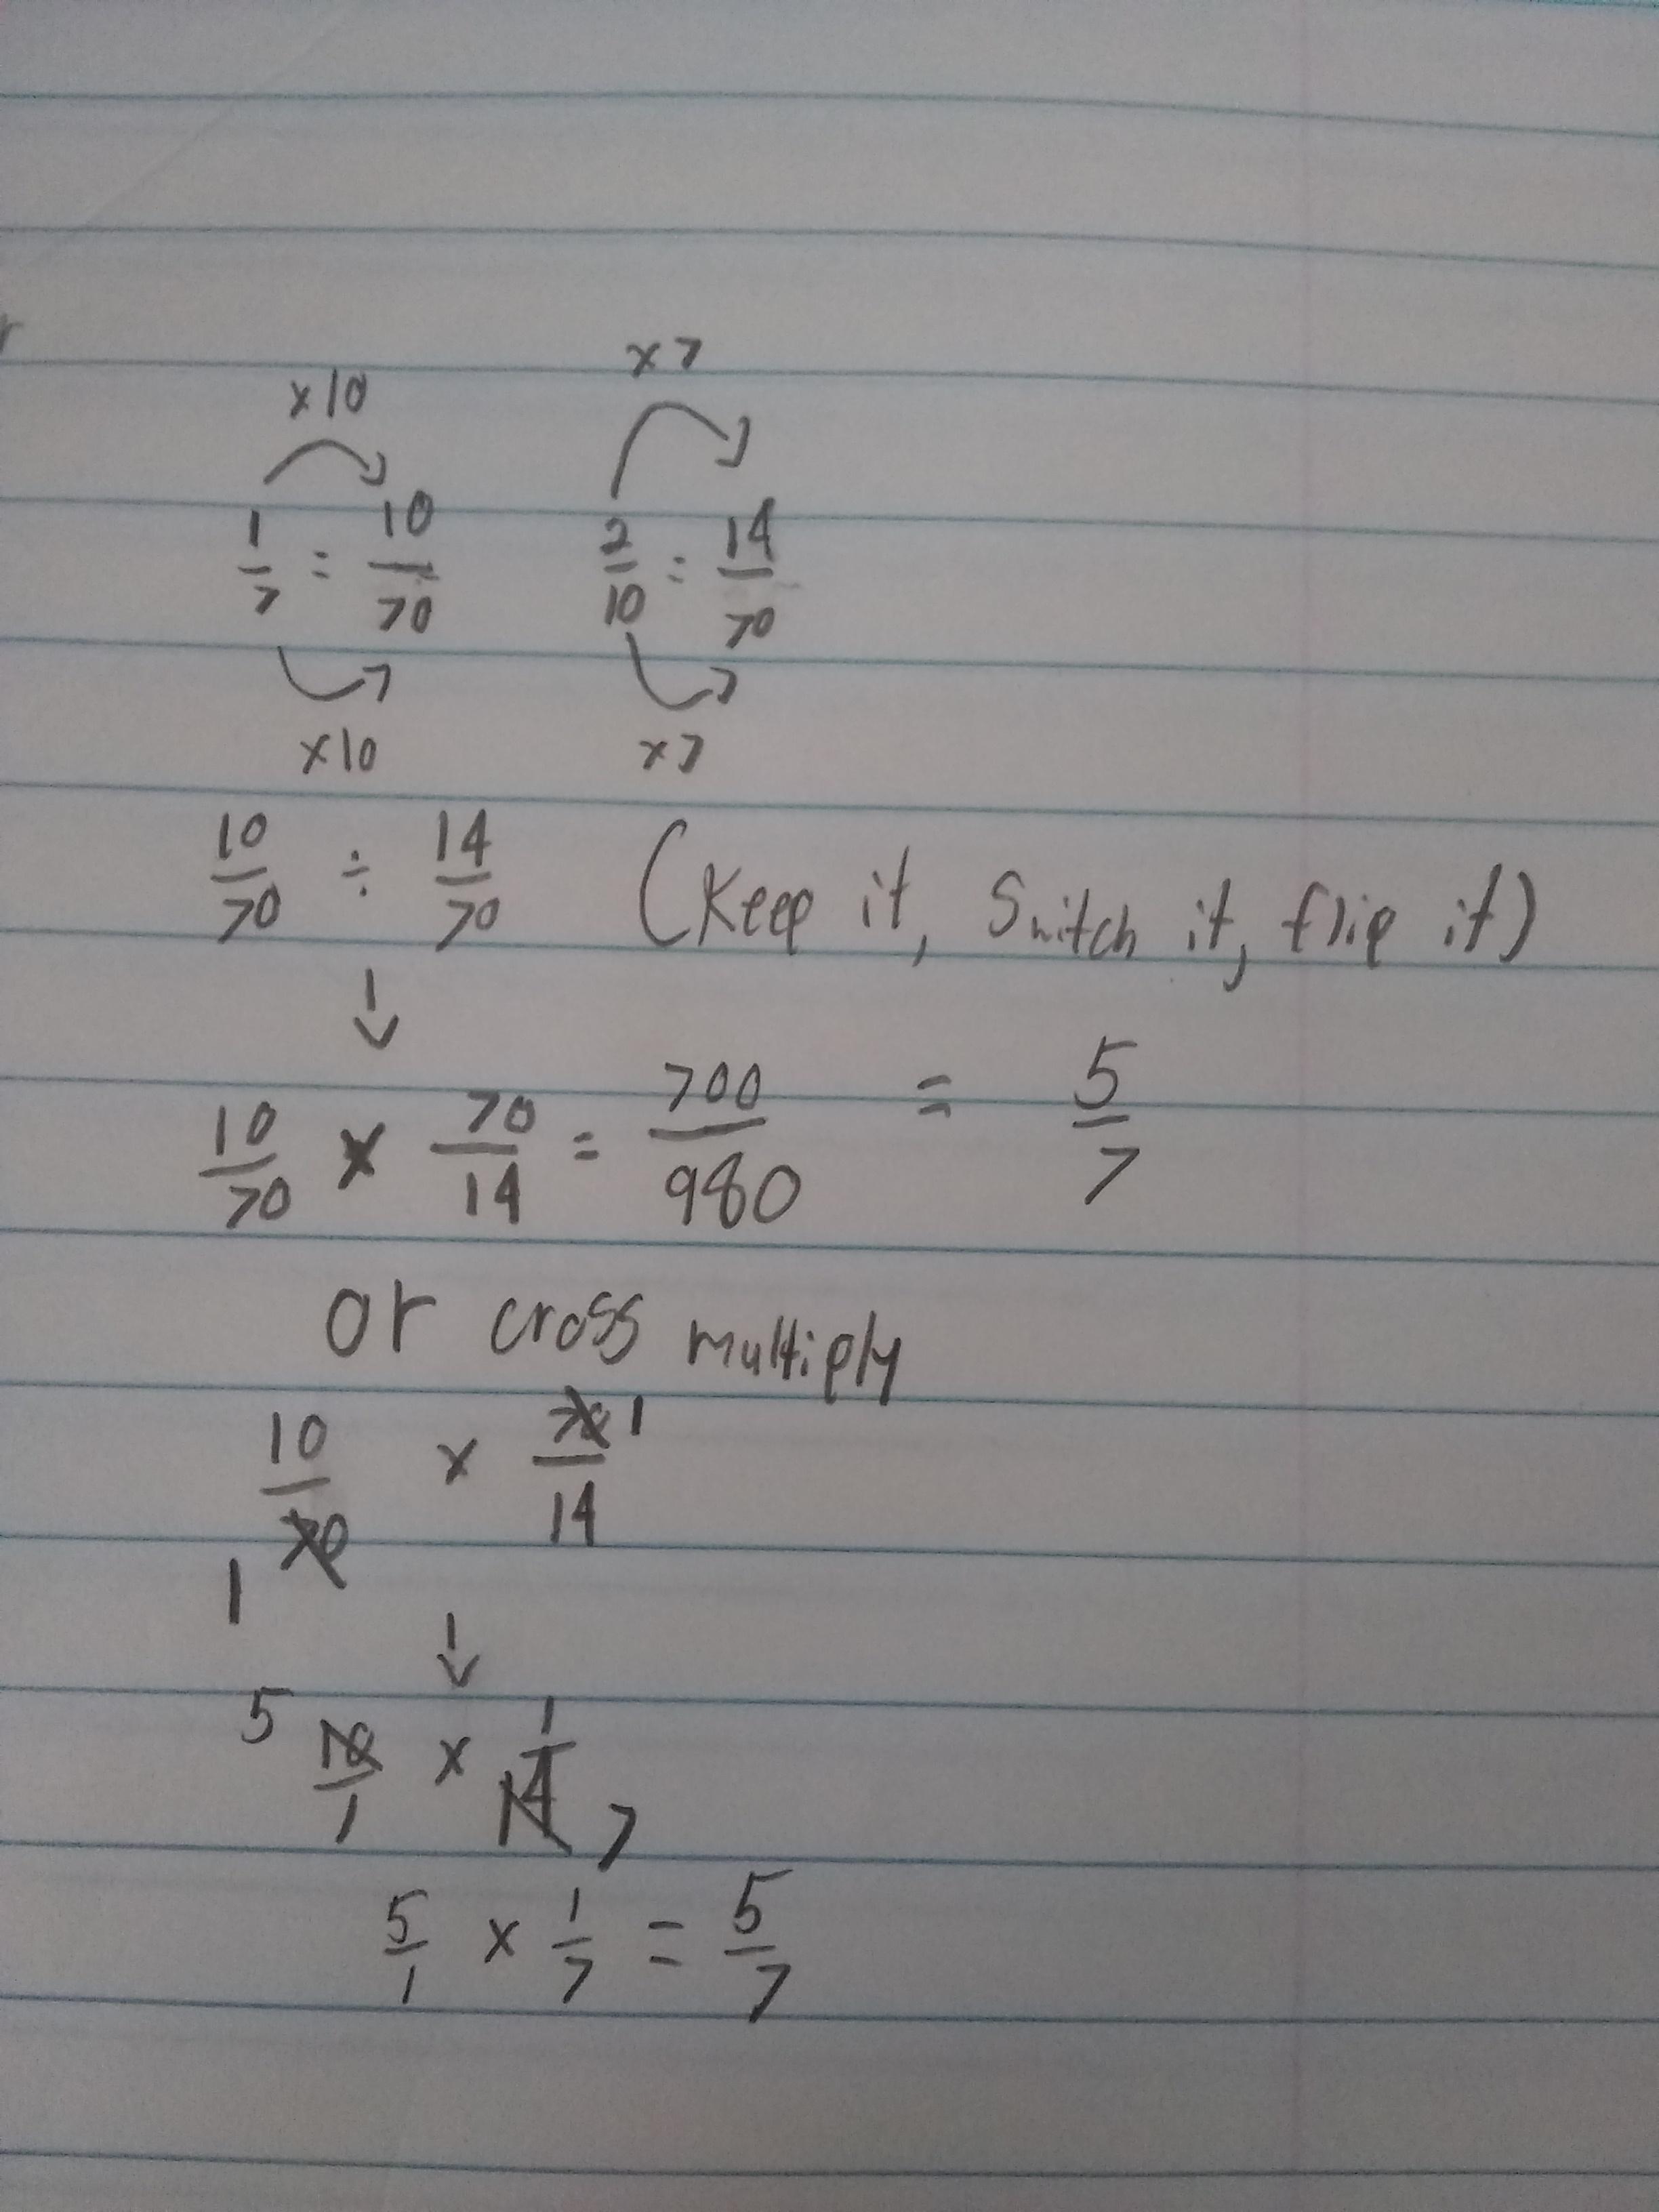 x10 x7
1/7 = 10/70 2/10 = 14/70
x10 x7
10/70 ÷ 14/70 (Keep it, Switch it, flip it)
↓
10/70 x 70/14 = 700/980 = 5/7
or cross multiply
10/70 x 70/14 1
1
↓
5 10/1 x 1/14 7
5/1 x 1/7 = 5/7